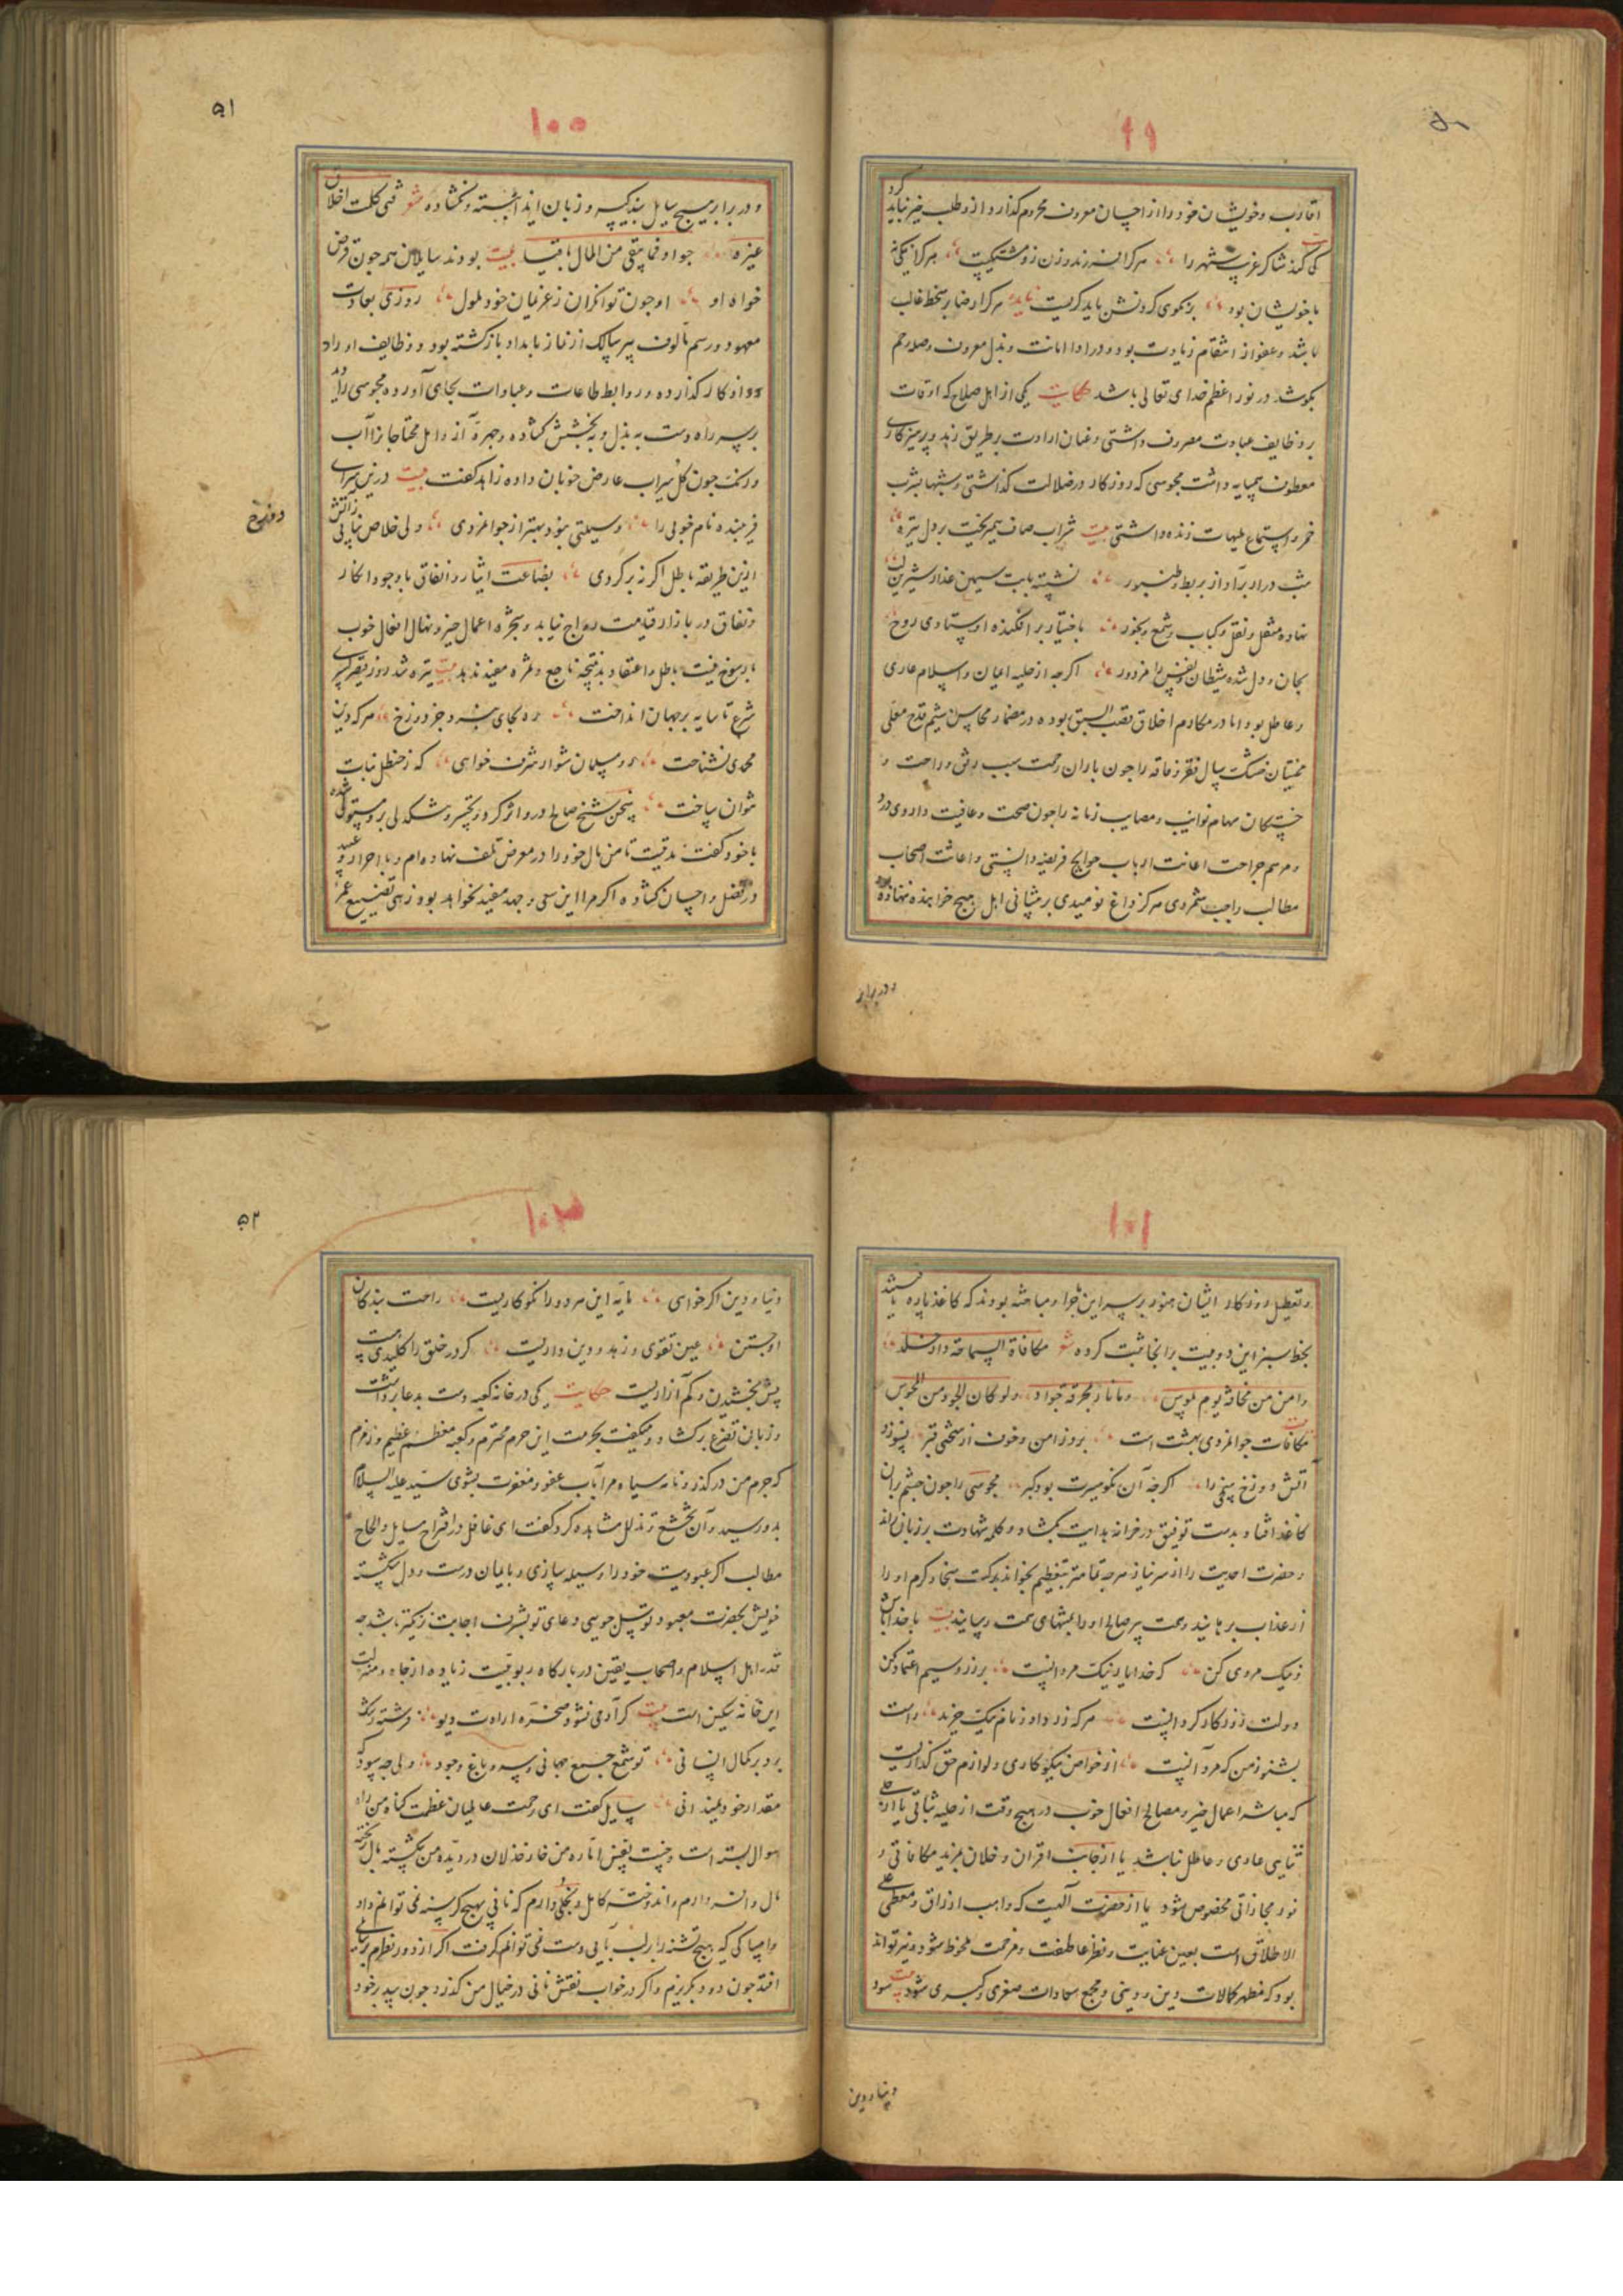 ۹۹
اقارب و خویشان خود را از احسان معروف محروم گذارد از وطلب خیر نباید کرد
کی کند شاکر غریب شهر را هرکرا فرزند و زن زو هرکرا نیکی نه
با خویشان بود بر نکوی کردنش باید گریست هرکرا رضا بر سخط غالب
باشد و عفو از انتقام زیادت بود و در ادا امانت و بذل معروف و صله رحم
بکوشد در نور اعظم خدای تعالی باشد حکایت یکی از اهل صلاح که اوقات
بر وظایف عبادت مصروف داشتی و عنان ارادت بر طریق زهد و پرهیزکاری
معطوف همسایه داشت مجوسی که روزکار در ضلالت گذاشتی و شبها بشرب
خمر و استماع ملهیات زنده داشتی بیت شراب صاف میریخت بر دل تیره
شب دراز بر آواز بربط و طنبور نشسته با بت سیمین عذار شیرین لب
نهاده منقل و نقل و کباب و شمع و بخور باختیار بر افکنده او ستادی روح
بجان و دل شده شیطان نفس را مزدور اگرچه از حلیه ایمان و اسلام عاری
و عاطل بود اما در مکارم اخلاق قصب السبق بوده در مضمار محاسن شیم قدح معلی
ممتحنان خشک سال فقر و فاقه را چون باران رحمت سبب رزق و راحت و
خستکان سهام نوایب و مصایب زمانه را چون صحت و عافیت داروی درد
و مرهم جراحت اعانت ارباب حوایج فریضه دانستی و اغاثت اصحاب
مطالب واجب شمردی هرکز داغ نومیدی بر پیشانی اهل هیچ خواهنده ننهاده
و در برابر
۱۰۰
۵۱
و در برابر هیچ سایل بندکیسه و زبان ایذا بسته و نکشاده شعر فتی کملت اخلاق
غیره جواد فما یبقی من المال باقیا بیت بودند سایلان همه چون قرض
خواه او او چون توانکران ز غریمان خود ملول روزی بعادت
معهود و رسم مالوف پیر سالک از نماز بامداد بازکشته بود و وظایف اوراد
و اذکار گذارده و روابط طاعات و عبادات بجای آورده مجوسی را دید
بر سر راه دست به بذل و بخشش کشاده و چهره آز و امل محتاجان را آب
و رنگ چون گل سیراب عارض خوبان داده زاهد گفت بیت درین سرای
فریبنده نام خوبی را وسیلتی نبود بهتر از جوانمردی ولی خلاص نیابی ز آتش
دوزخ
ازین طریقه باطل اگر نه برگردی بضاعت ایثار و انفاق با وجود انکار
و نفاق در بازار قیامت رواج نیابد و شجره اعمال خیر و نهال افعال خوب
با رسوخ نیت باطل و اعتقاد بد نتیجه ناجع و ثمره مفید ندهد بیت تیره شد روز قیصر کسری
شرع تا سایه بر جهان انداخت ره بجای نبرد جز دوزخ هرکه دین
محمدی نشناخت رو مسلمان شو ار شرف خواهی که ز حنظل نبات
نتوان ساخت سخن شیخ صالح در وی اثر کرد و تحسر و شکدلی برو مستولی شده
با خود گفت مدتیست تا من مال خود را در معرض تلف نهاده‌ام و با احرار و عبید
در تفضل و احسان کشاده اکر مرا این سعی و جهد مفید نخواهد بود زهی تضییع عمر
۱۰۱
و تعطیل روزکار ایشان هنوز بر سر این ماجرا و مباحثه بودند که کاغذ پاره
بخط سبز این دو بیت بر آنجا ثبت کرده شعر مکافاة السماحة دار خلد
و امن من مخافة یوم بوس و ما نار بمحرقة جوادا ولو کان الجواد من المجوس
مکافات جوانمردی بهشت است بروز امن و خوف از سختی قبر نسوزد
آتش دوزخ سخی را اگرچه آن نکو سیرت بود گبر مجوسی را چون چشم بر آن
کاغذ افتاد بدست توفیق در خزانه هدایت بکشاد و کلمه شهادت بر زبان راند
و حضرت احدیت را از سر نیاز هرچه تمامتر بتعظیم بخواند ببرکت سخا و کرم او را
از عذاب برهانید و صحبت پیر صالح او را بمنتهای همت رسانید بیت با خدا باش
و نیک مردی کن که خدا یار نیک مردانست بر زر و سیم اعتماد مکن
دولت زود کار کردانست هرکه زر داد و نام نیک خرید راست
بشنو ز من که مرد آنست از خواص نیکوکاری و لوازم حق گذاریست
که مباشر اعمال خیر و مصالح افعال خوب در هیچ وقت از حلیه ثباتی یا از
ثنایی عاری و عاطل نباشد یا از جانب اقران و خلان بمزید مکافاتی و
نور مجازاتی مخصوص شود یا از حضرت الهیت که واهب ارزاق و معطی علی
الاطلاق است بعین عنایت و نظر عاطفت و مرحمت ملحوظ شود و نیز تواند
بود که مظهر کمالات دین و دینی و مجمع سعادات صغری و کبری شود بیت سود
دنیا و دین
۱۰۲
۵۲
دنیا و دین اکر خواهی مایه این هر دو را نکوکاریست راحت بندکان
او جستن عین تقوی و زهد و دین داریست گر در خلق را کلیدی هست
بیش بخشیدن و کم آزاریست حکایت یکی در خانه کعبه دست بدعا برداشت
و زبان تضرع برکشاد و میگفت بحرمت این حرم محترم و کعبه معظم عظیم و زمزم
که جرم من در گذر و نامه سیاه مرا بآب عفو و مغفرت بشوی سید علیه السلام
بدو رسید و آن تخشع و تذلل مشاهده کرد گفت ای غافل در اقتراح مسایل و انجاح
مطالب اکر عبودیت خود را وسیله سازی و بایمان درست و دل شکسته
خویش بحضرت معبود توسل جویی دعای تو بشرف اجابت نزدیکتر باشد چه
قدر اهل اسلام و اصحاب یقین در بارگاه ربوبیت زیاده از جاه و منزلت
این خانه سنگین است بیت کر آدمی نشود مسخره ارادت دیو فرشته رشک
برد بر کمال انسانی تو شمع جمع جهانی و سرو باغ وجود ولی چه سود که
مقدار خود نمیدانی سایل گفت ای رحمت عالمیان عظمت گناه من راه
سوال بسته است و خبث نفس اماره من خار خذلان در دیده من شکسته مال
مال وافر دارم و اندوخته کامل و بخلی دارم که نانی بهیچ گرسنه نمی‌توانم داد
و امساکی که هیچ تشنه را بر لب آبی دست نمی‌توانم گرفت اکر از دور نظرم بر سایلی
افتد چون دود بگریزم و اکر در خواب نقش نانی در خیال من گذرد چون بید بر خود